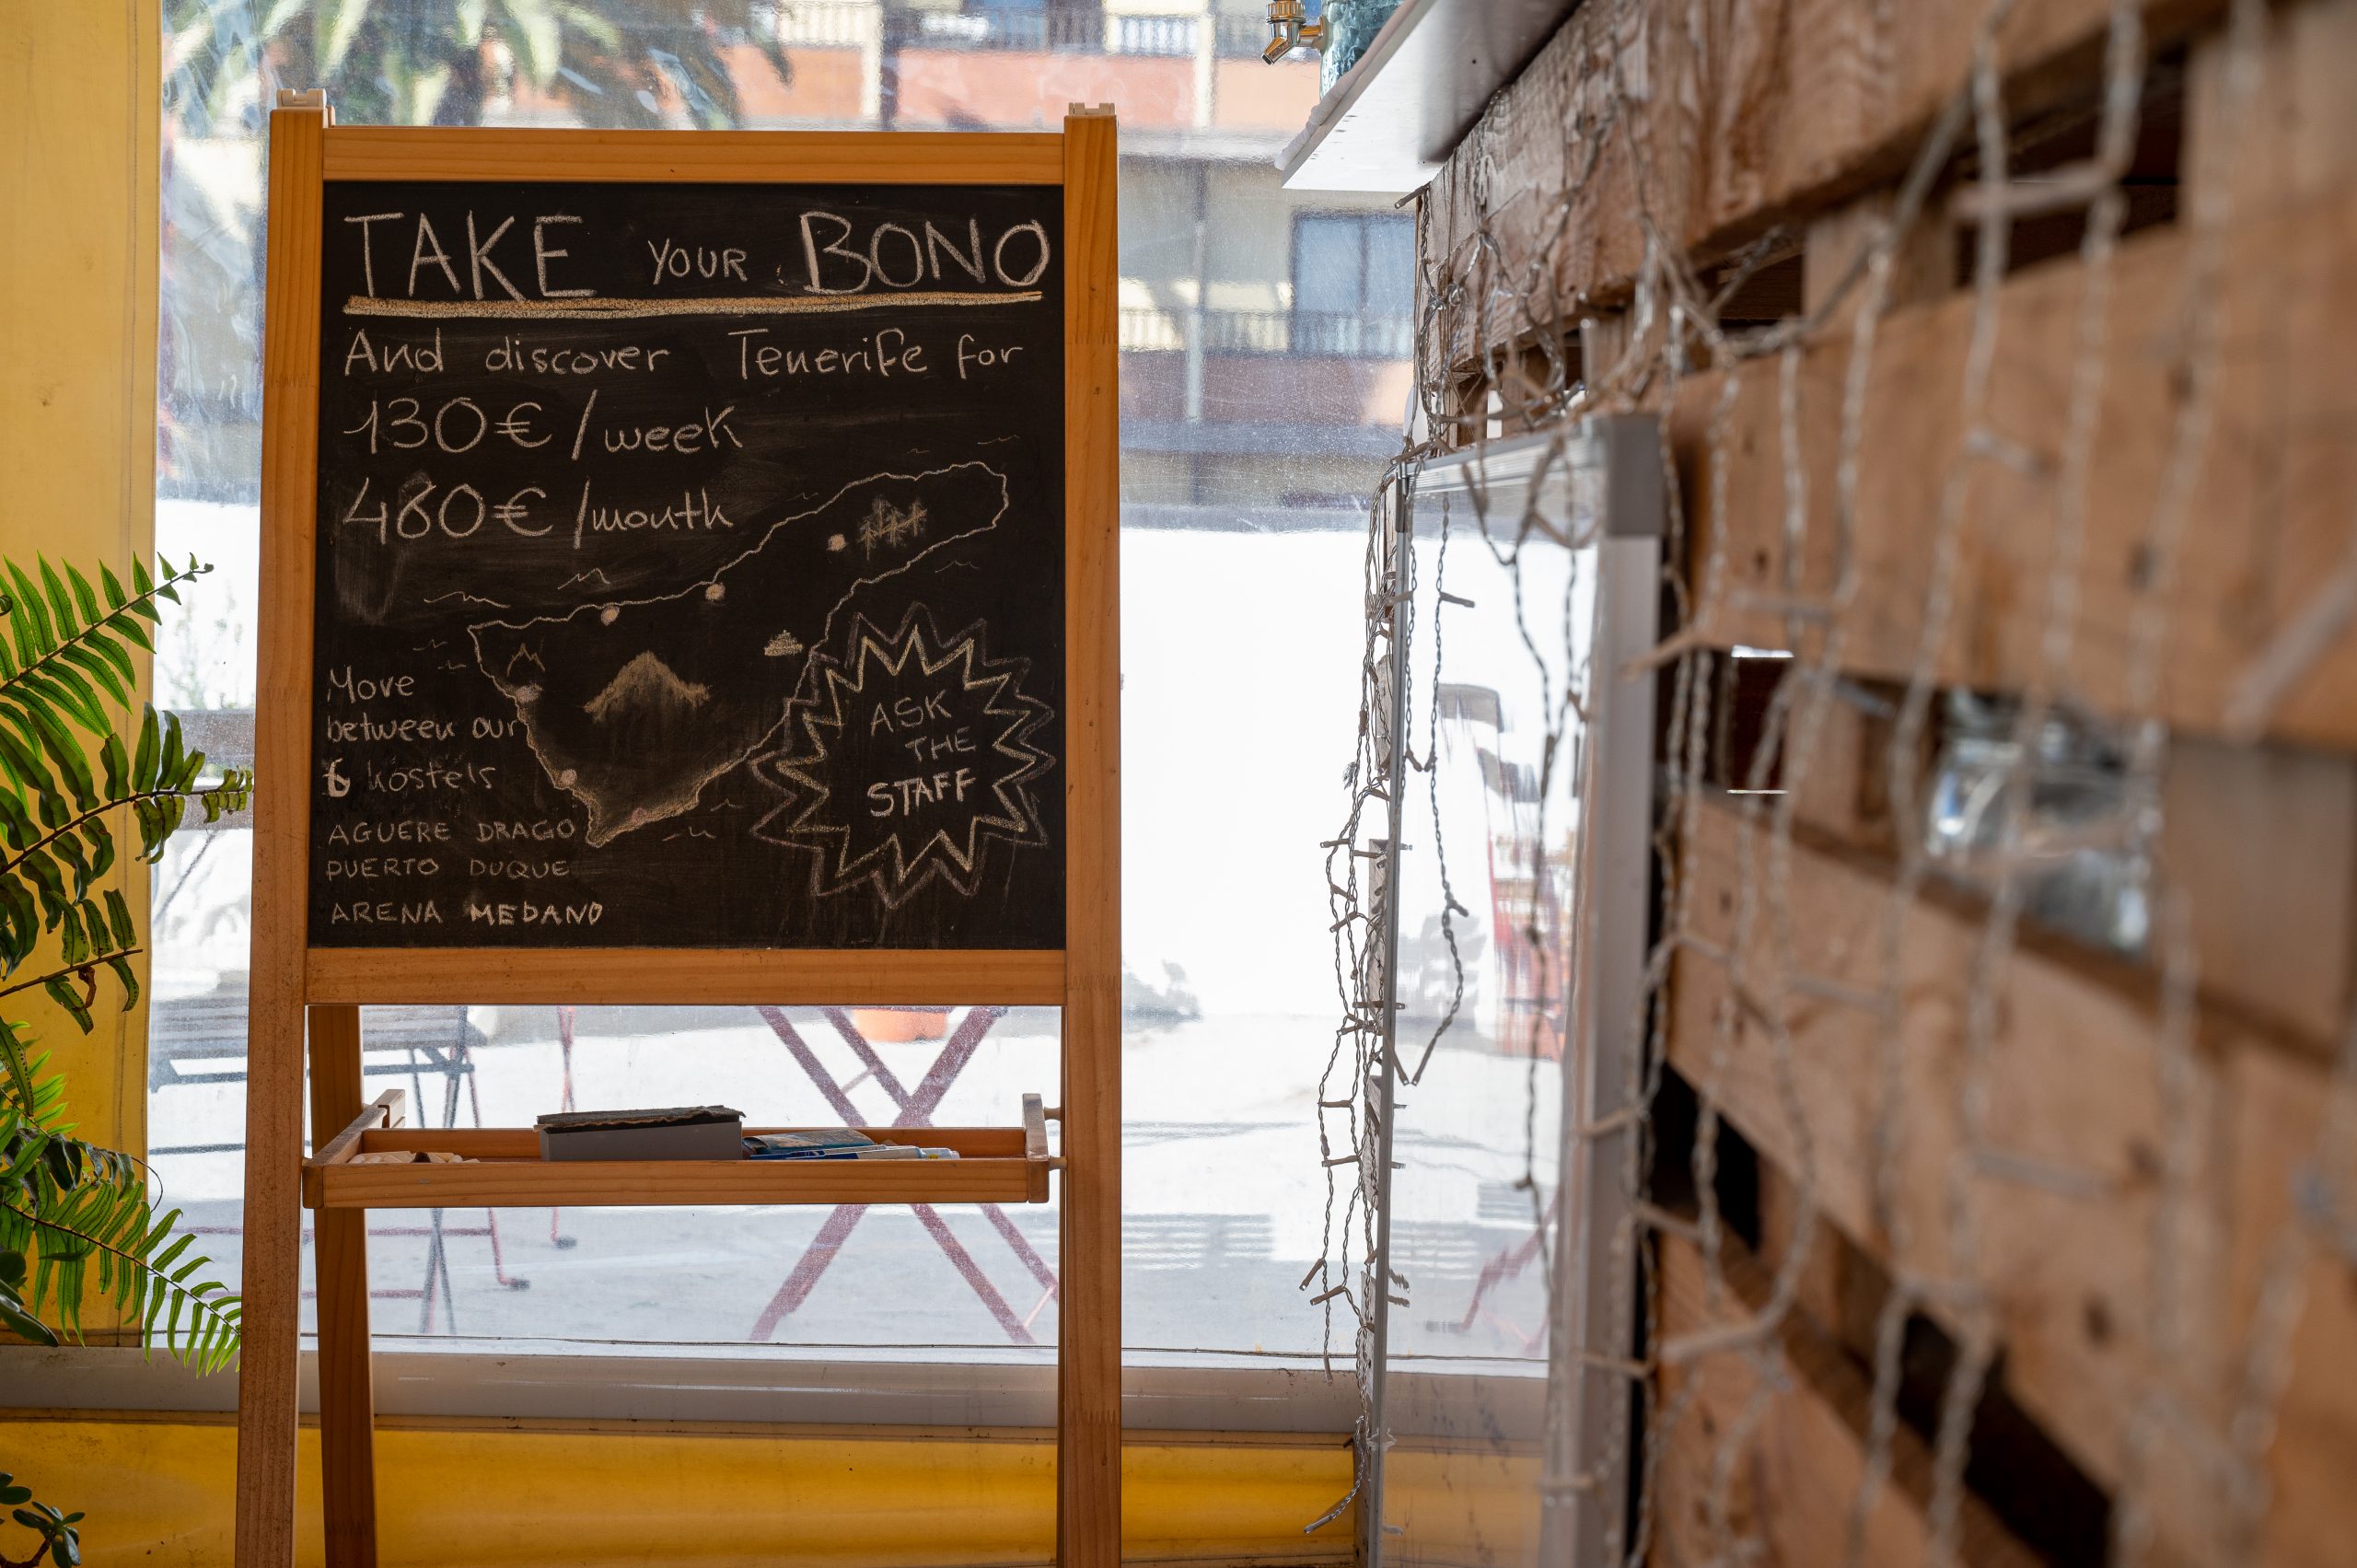 TAKE YOUR BONO
And discover Tenerife for
130€/week
480€/month
Move
between our
6 hostels
AGUERE DRAGO
PUERTO DUQUE
ARENA MEDANO
ASK
THE
STAFF